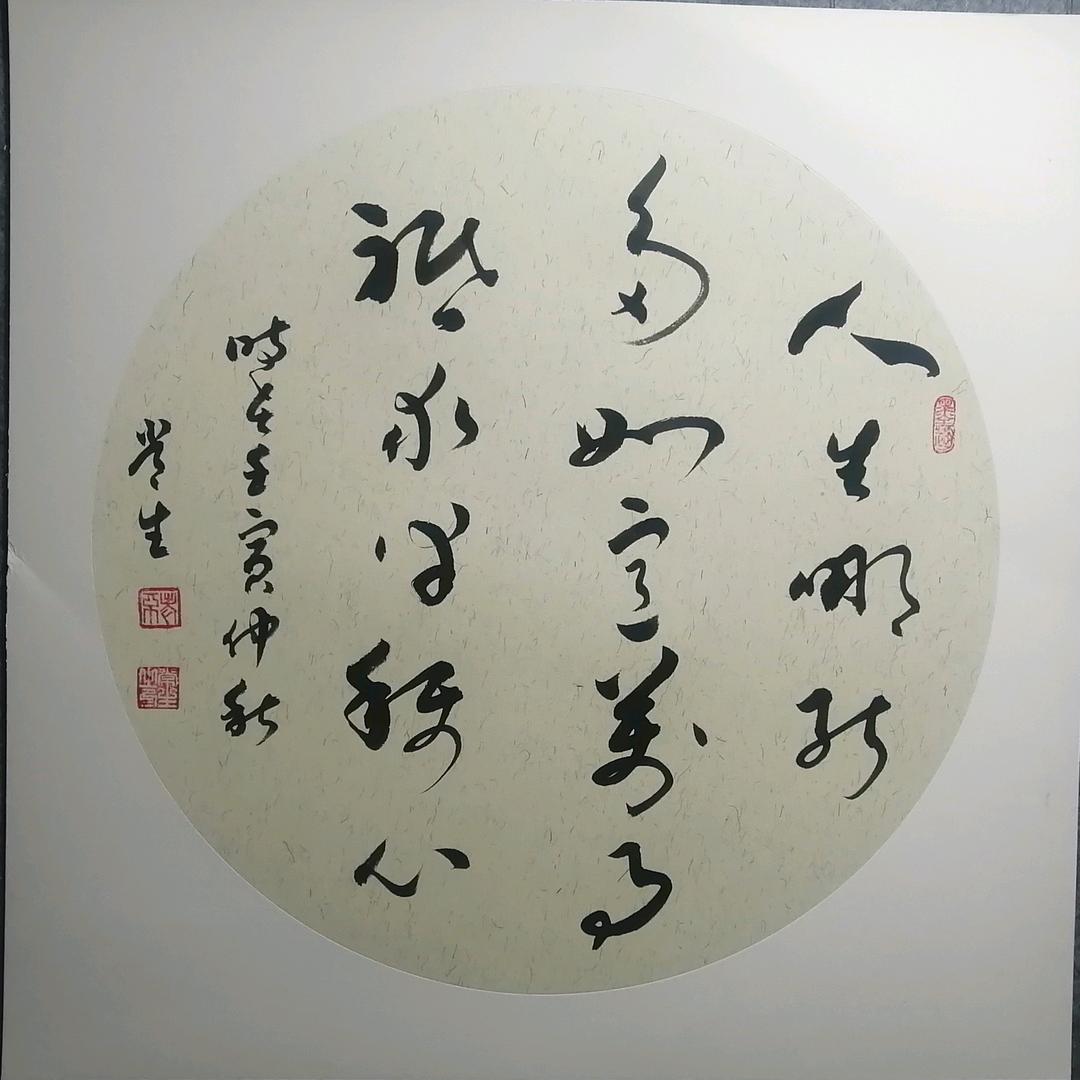 人生哪能
多如意萬事
祇求半稱心
時在壬寅仲秋
生